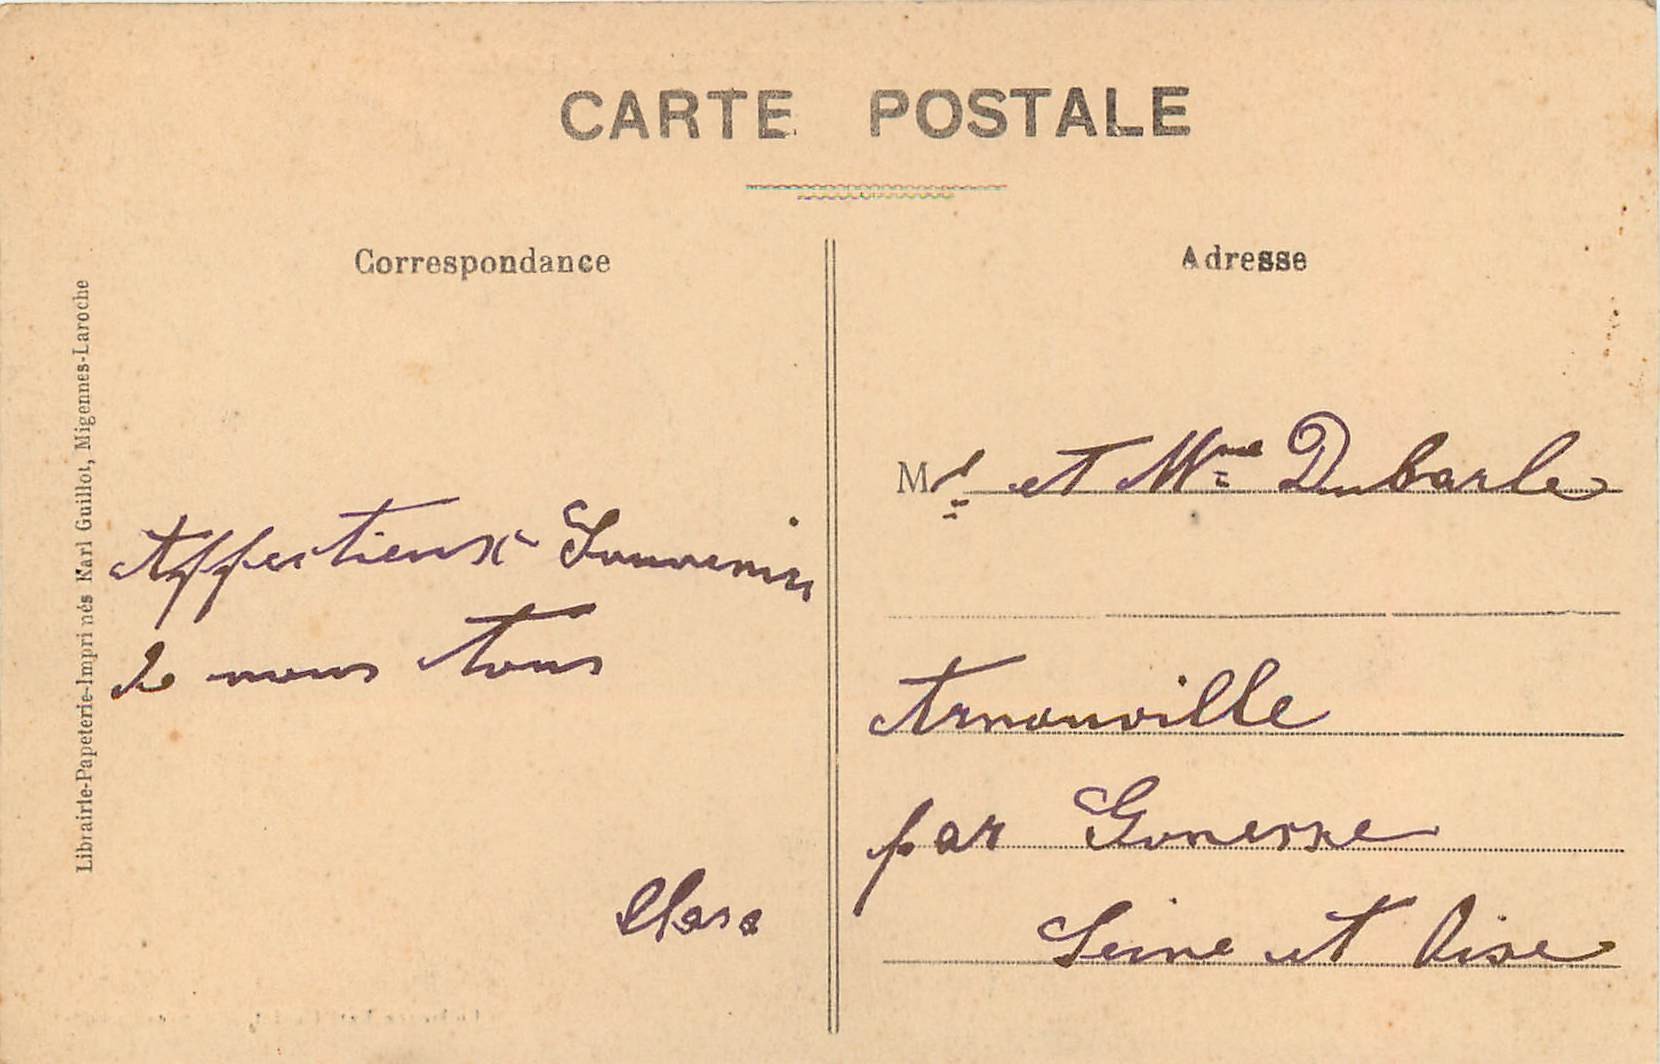 CARTE POSTALE
Correspondance
Adresse
Librairie-Papeterie-Imprimés Karl Guillot, Migennes-Laroche
Affectieux Souvenir
de nous tous
Clara
Mr et Mme Dubarle
Arnouville
par Gonesse
Seine et Oise